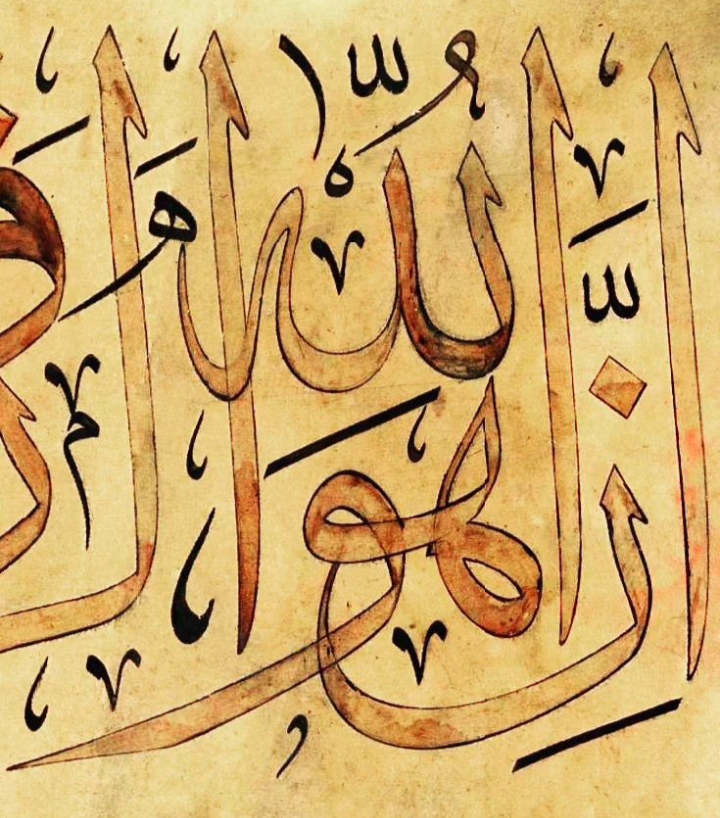 اِنَّ اللّٰهَ هُوَ ال